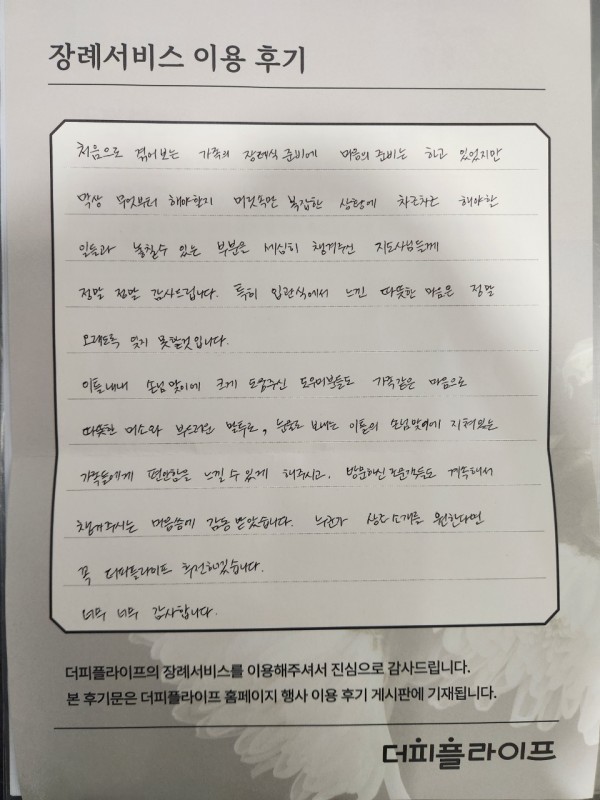 장례서비스 이용 후기
처음으로 겪어보는 가족의 장례식 준비에 마음의 준비는 하고 있었지만
막상 무엇부터 해야할지 머릿속만 복잡한 상황에 차근차근 해야할
일들과 놓칠수 있는 부분은 세심히 챙겨주신 지도사님들께
정말 정말 감사드립니다. 특히 입관식에서 느낀 따뜻한 마음은 정말
오래도록 잊지 못할것 입니다.
이틀내내 손님맞이에 크게 도움주신 도우미분들도 가족같은 마음으로
따뜻한 미소와 부드러운 말투로, 눈물로 보내는 이틀의 손님맞이에 지쳐있는
가족들에게 편안함을 느낄 수 있게 해주시고, 방문하신 조문객들도 계속해서
챙겨주시는 마음씀에 감동받았습니다. 누군가 상조소개를 원한다면
꼭 더피플라이프 추천하겠습니다.
너무 너무 감사합니다.
더피플라이프의 장례서비스를 이용해주셔서 진심으로 감사드립니다.
본 후기문은 더피플라이프 홈페이지 행사 이용 후기 게시판에 기재됩니다.
더피플라이프